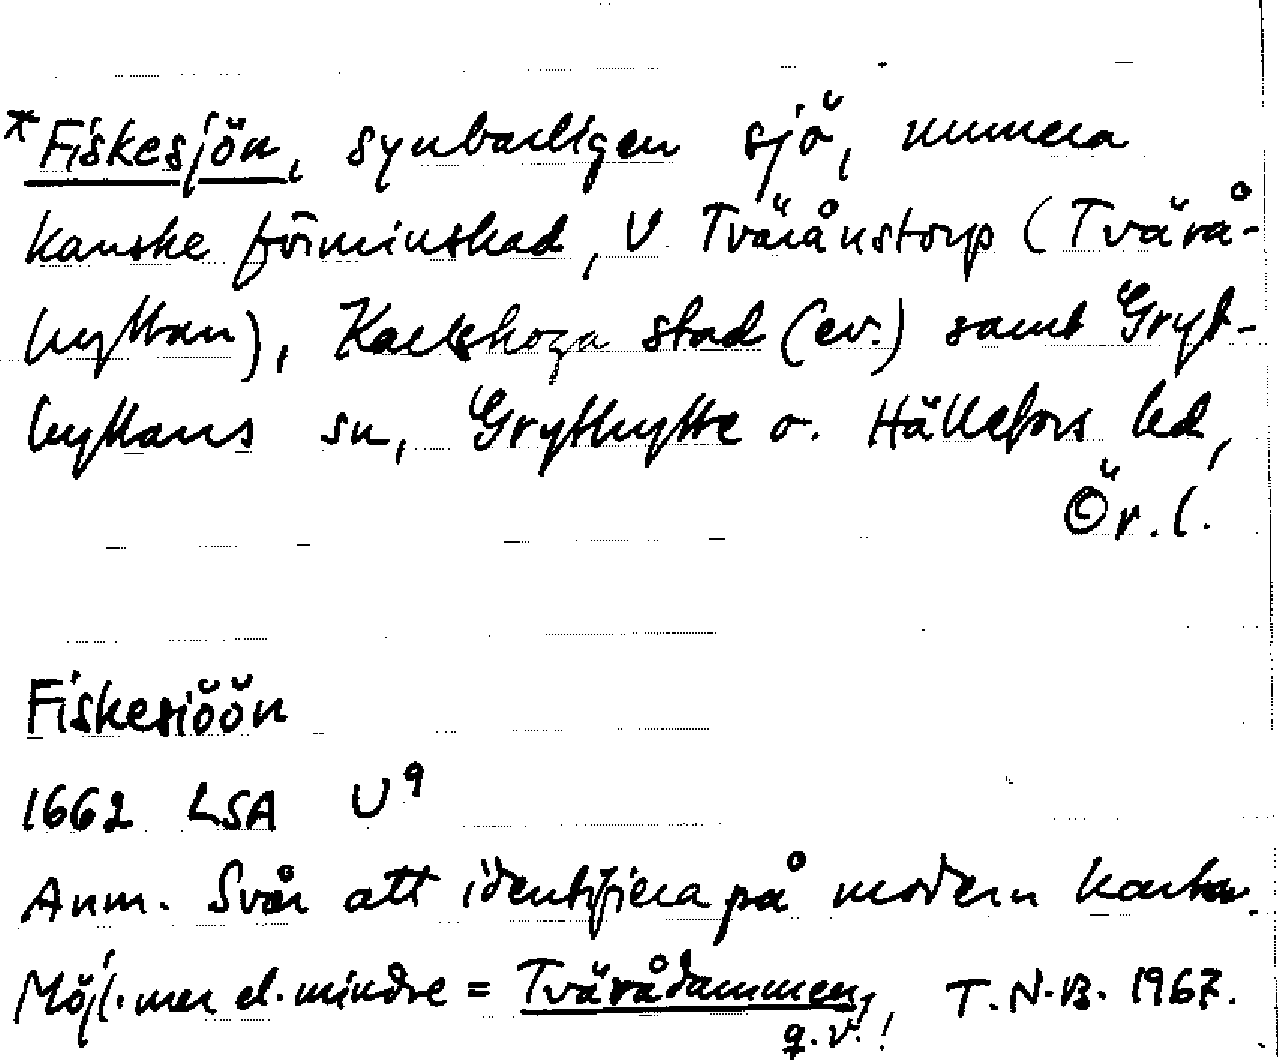 *Fiskesjön, synbarligen sjö, numera
kanske förminskad, V Tväråنstorp (Tvärå-
hyttan), Karlskoga stad (ev.) samt Gryt-
hyttans sn, Grythytte o. Hällefors bd,
Ör. l.
Fiskesiöön
1662 LSA U⁹
Anm. Svår att identifiera på modern karta.
Möjl. mer el. mindre = Tvärådammen,
q.v.! T.N.B. 1967.